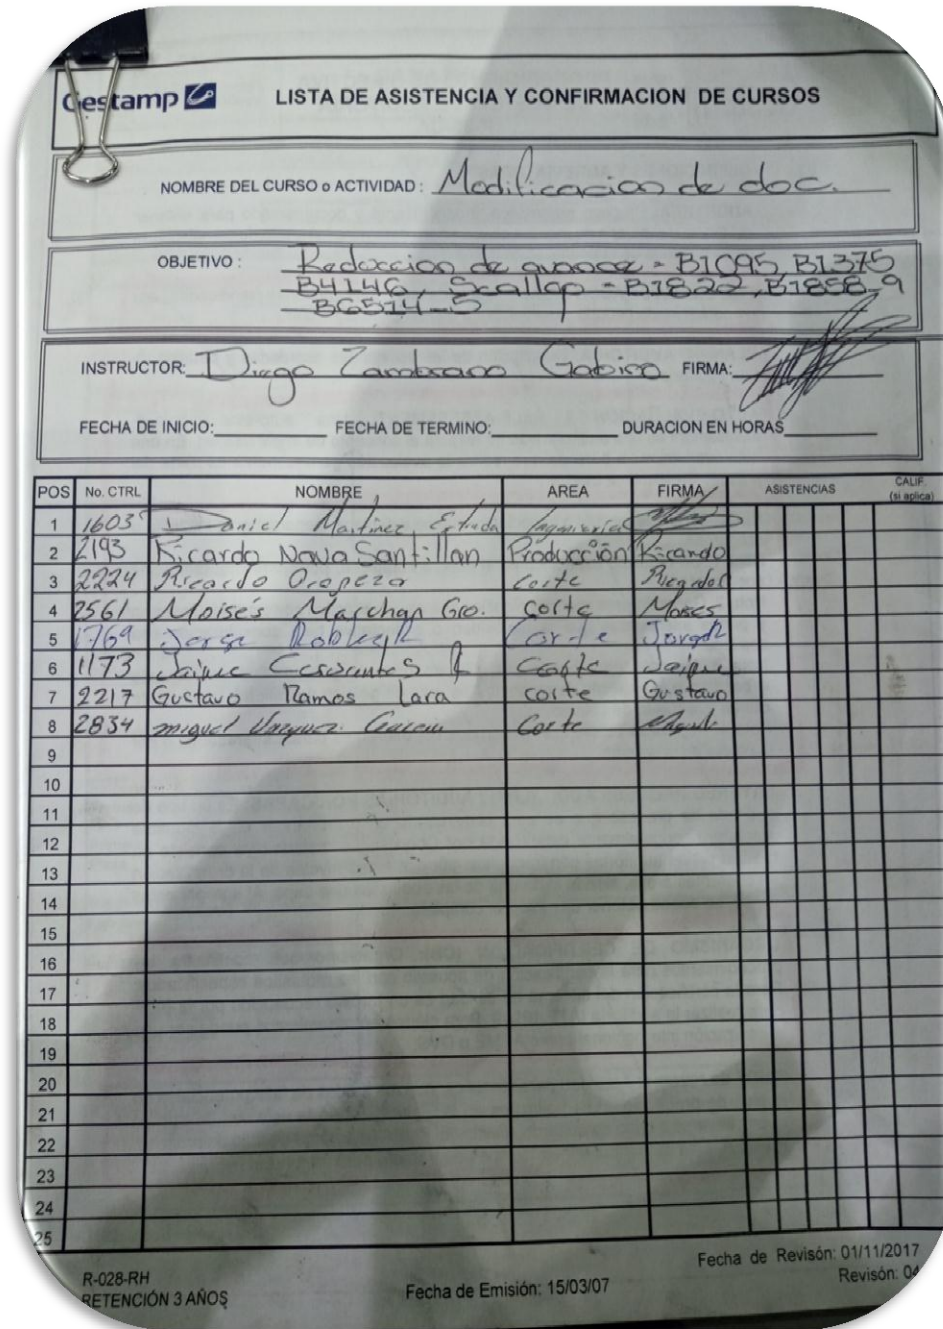 Gestamp LISTA DE ASISTENCIA Y CONFIRMACION DE CURSOS
NOMBRE DEL CURSO o ACTIVIDAD : Modificacion de doc.
OBJETIVO : Reduccion de avance - B1095, B1375
B4146, Scallop - B1822, B1858-9
B6514-5
INSTRUCTOR: Diego Zambrano Gabino FIRMA:
FECHA DE INICIO: FECHA DE TERMINO: DURACION EN HORAS
POS No. CTRL NOMBRE AREA FIRMA ASISTENCIAS CALIF. (si aplica)
1 1603 Daniel Martinez Estrada Ingenieria
2 2193 Ricardo Nava Santillan Producción Ricardo
3 2224 Ricardo Oropeza Corte
4 2561 Moisés Marchan Gro. corte Moises
5 1769 Jorge Robles Corte Jorge
6 1173 Jaime Cervantes Corte Jaime
7 2217 Gustavo Ramos Lara corte Gustavo
8 2834 miguel Vazquez Garcia Corte
9
10
11
12
13
14
15
16
17
18
19
20
21
22
23
24
25
R-028-RH
RETENCIÓN 3 AÑOS
Fecha de Emisión: 15/03/07
Fecha de Revisón: 01/11/2017
Revisón: 04